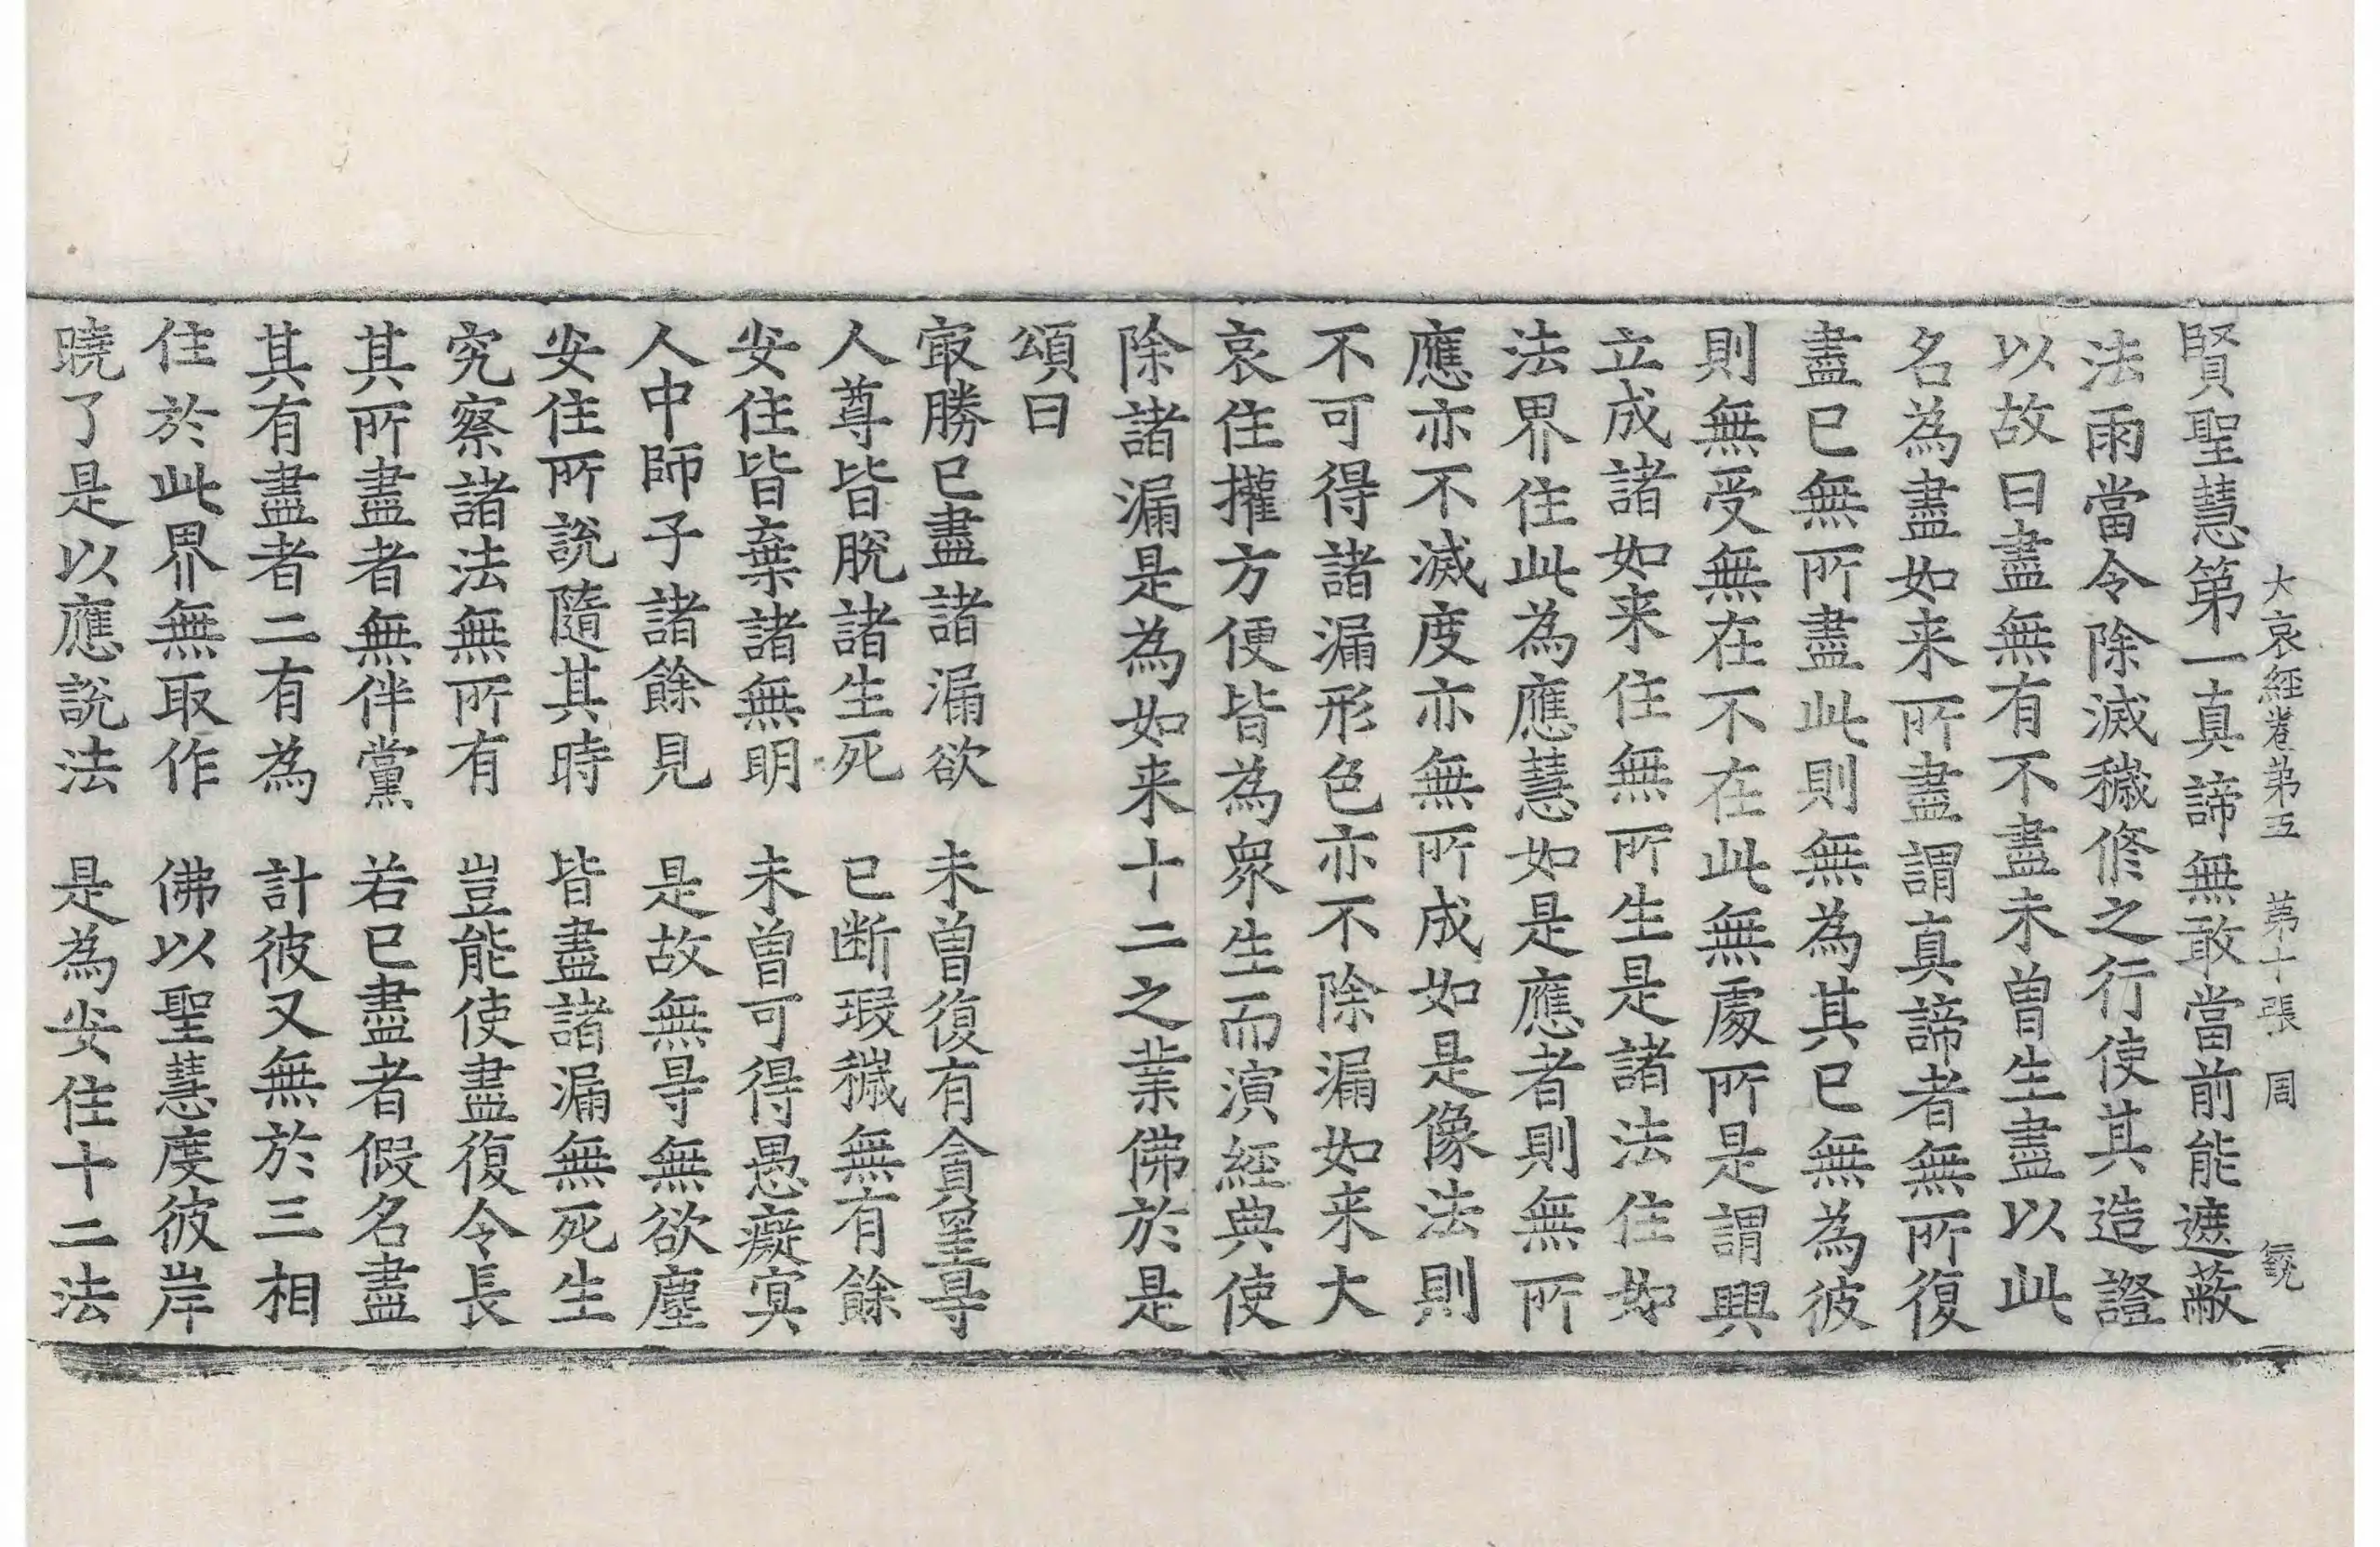 大哀經卷第五　第十張　周
賢聖慧第一真諦無敢當前能遮蔽
法雨當令除滅穢修之行使其造證
以故曰盡無有不盡未曾生盡以此
名為盡如来所盡謂真諦者無所復
盡已無所盡此則無為其已無為彼
則無受無在不在此無處所是謂興
立成諸如来住無所生是諸法住如
法界住此為應慧如是應者則無所
應亦不滅度亦無所成如是像法則
不可得諸漏形色亦不除漏如来大
哀住攉方便皆為衆生而演經典使
除諸漏是為如来十二之業佛於是
頌曰
冣勝已盡諸漏欲　未曾復有貪望㝵
人尊皆脫諸生死　已断瑕穢無有餘
安住皆棄諸無明　未曾可得愚癡冥
人中師子諸餘見　是故無㝵無欲塵
安住所說隨其時　皆盡諸漏無死生
究察諸法無所有　豈能使盡復令長
其所盡者無伴黨　若已盡者假名盡
其有盡者二有為　計彼又無於三相
住於此界無取作　佛以聖慧度彼岸
曉了是以應說法　是為安住十二法